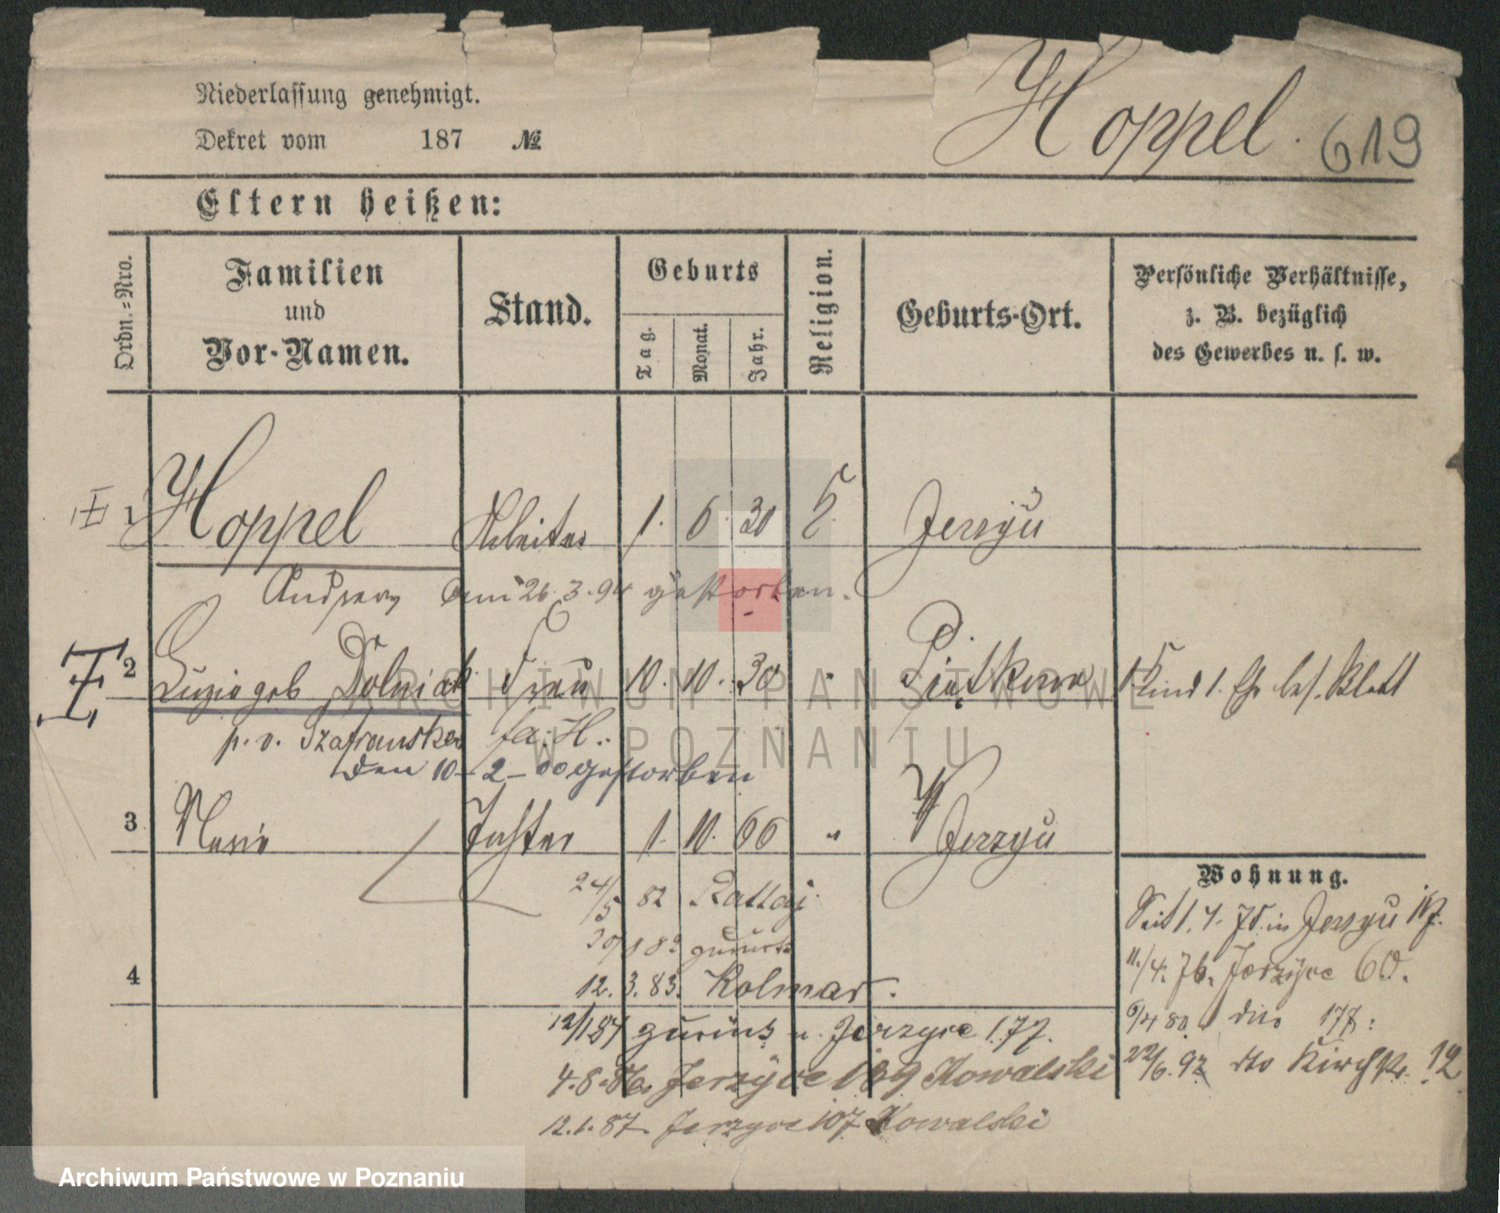 Niederlassung genehmigt.
Dekret vom 187 №
Hoppel. 619
Eltern heißen:
Ordn.-Nro.
Familien
und
Vor-Namen.
Stand.
Geburts
Tag.
Monat.
Jahr.
Religion.
Geburts-Ort.
Persönliche Verhältnisse,
z. B. bezüglich
des Gewerbes u. s. w.
1 Hoppel Arbeiter 1. 6. 30 Jerzyu
Andreas am 26.3.94 gestorben.
2 geb Dolniak Frau 10. 10. 30 " Piatkowo 1 Kind 1. Eh. bes. Blatt
p. v. Szafranska
den 10-2-00 gestorben
3 Marie Tochter 1. 10. 66 " Jerzyu
24/5 82 Rattaj
zurück
4
12. 3. 83. Kolmar.
12/1 84 zurück n. Jerzyce 177.
4.8.86. Jerzyce 109 Kowalski
12.1.87. Jerzyce 107 Kowalski
Wohnung.
Seit 1. 4. 75. in Jerzyu
11./4. 76. Jerzyce 60.
6/4 80 dito 178.
22/6. 92 dto Kirchstr. 12
ARCHIWUM PAŃSTWOWE
W POZNANIU
Archiwum Państwowe w Poznaniu